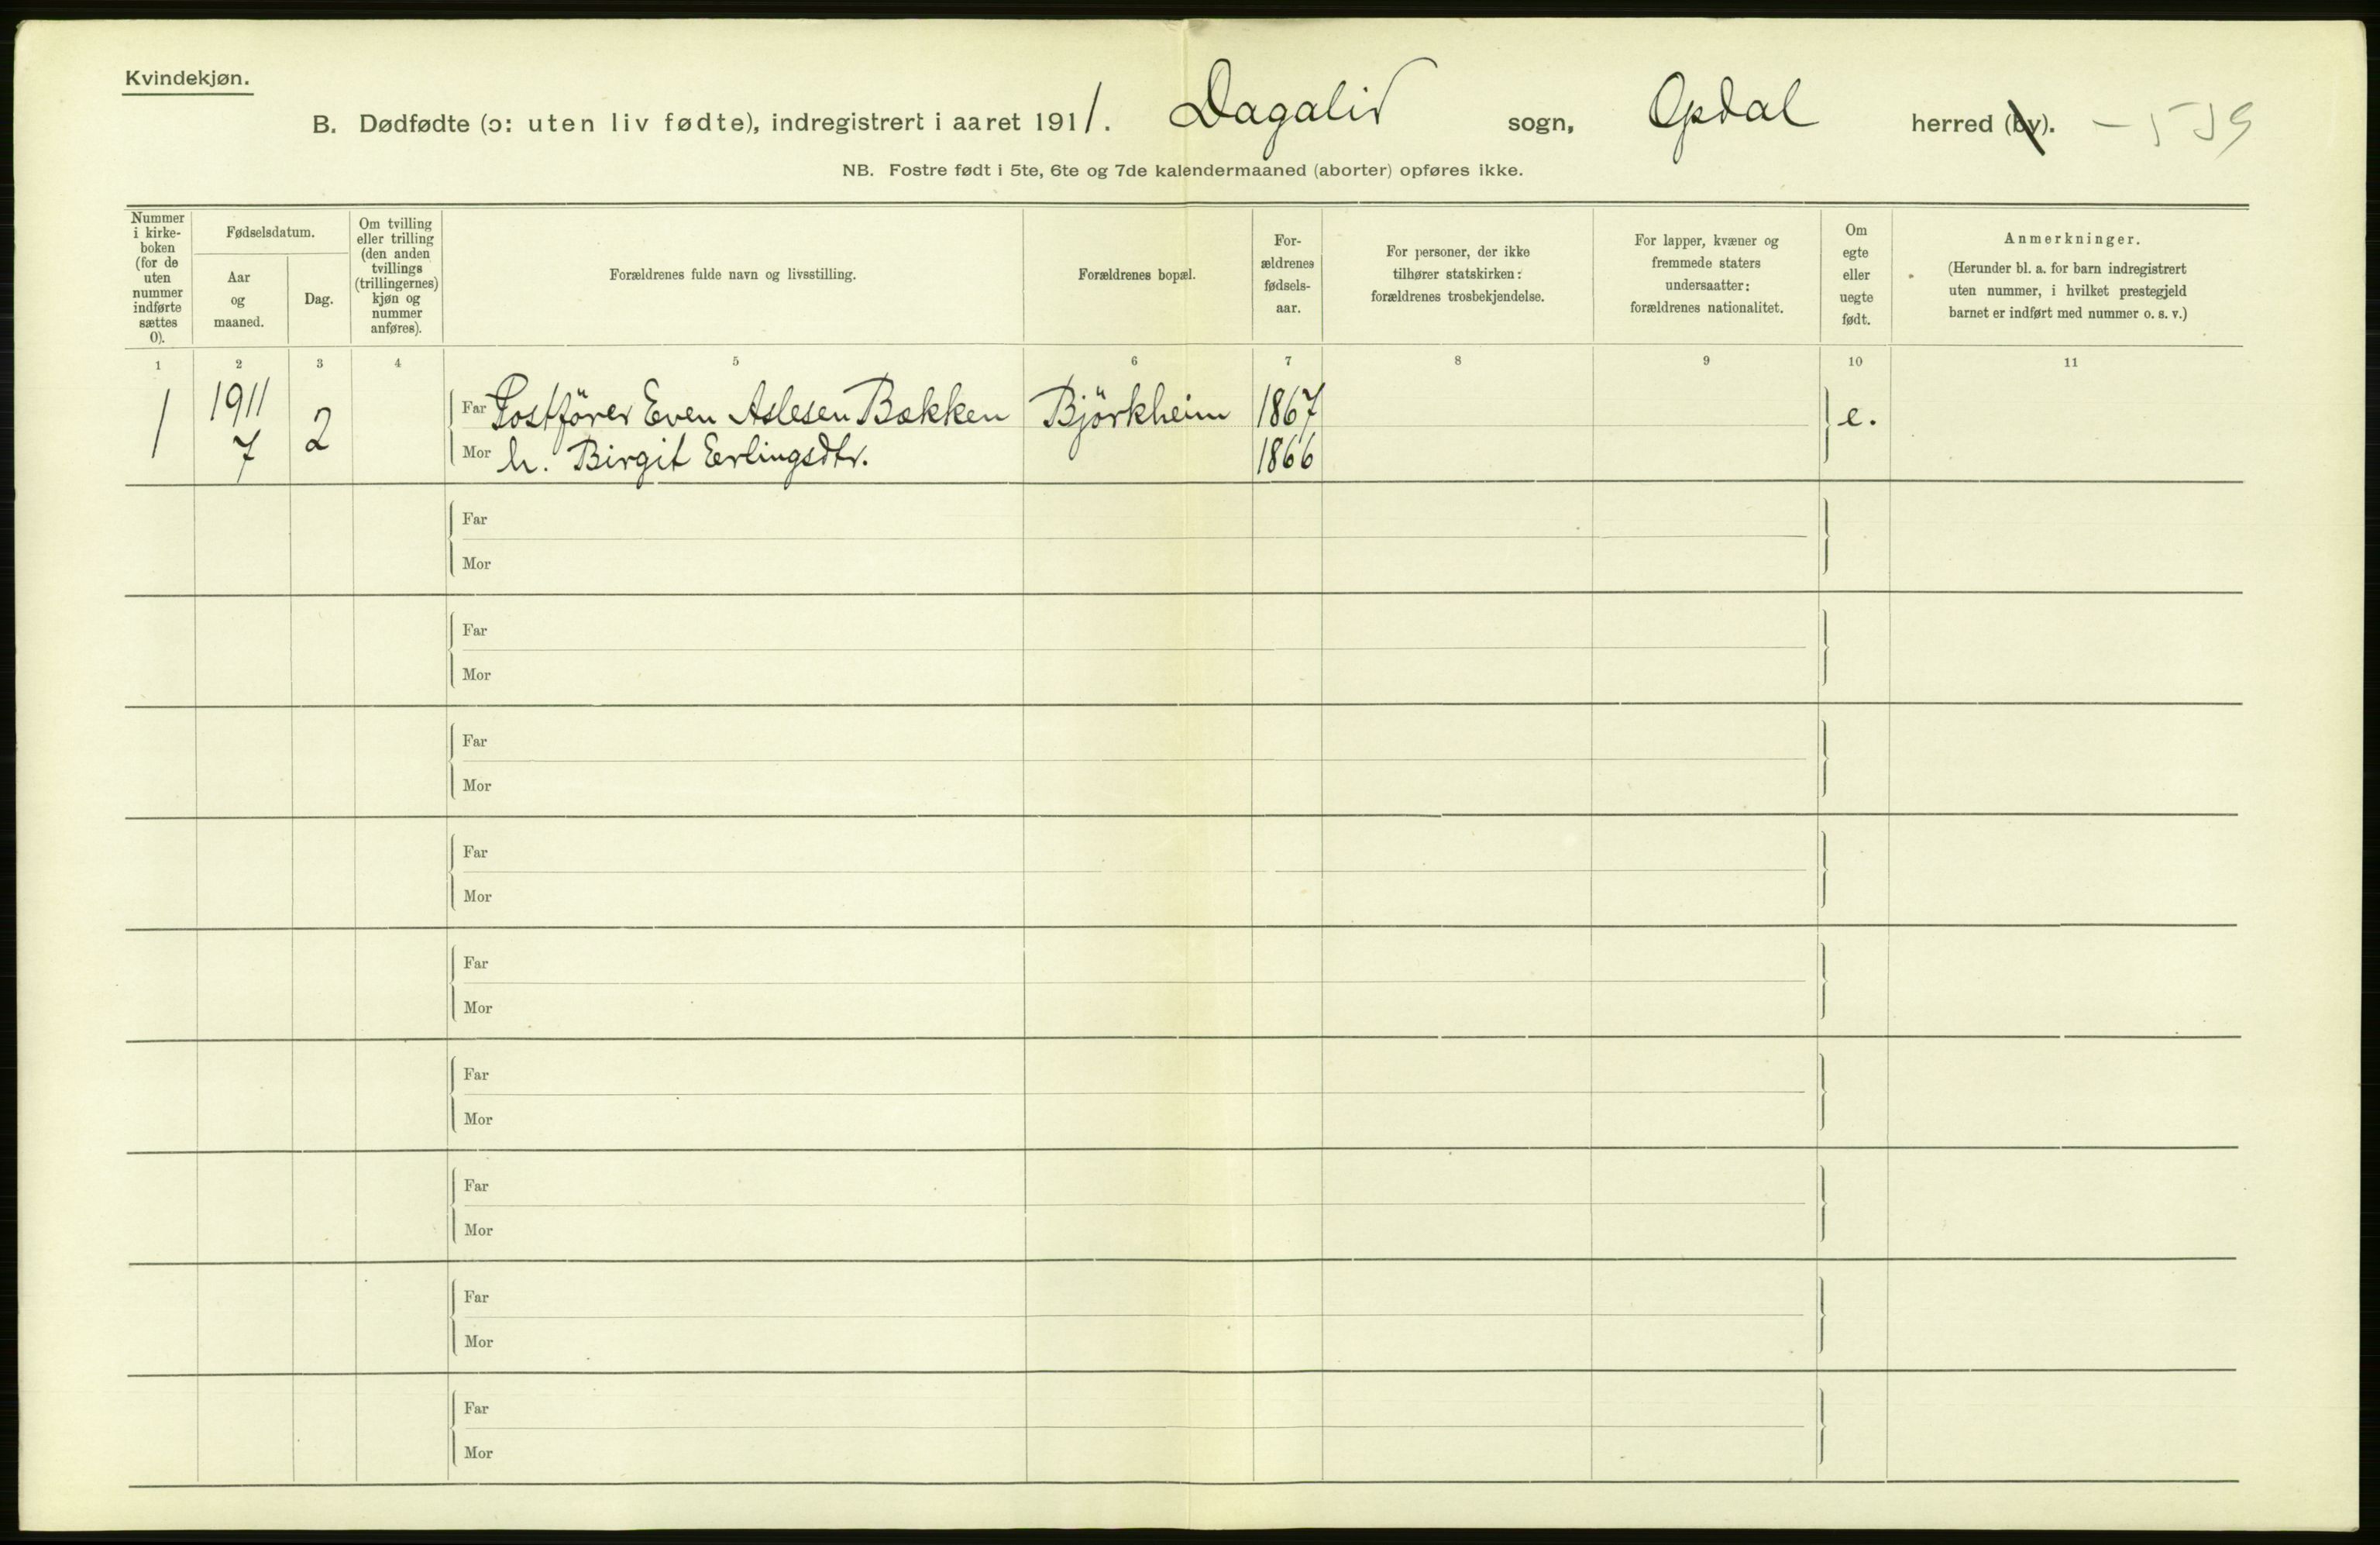 Kvindekjøn.
B. Dødfødte (ɔ: uten liv fødte), indregistrert i aaret 1911. Dagalid sogn, Opdal herred (by).
NB. Fostre født i 5te, 6te og 7de kalendermaaned (aborter) opføres ikke.
Nummer
i kirke-
boken
(for de
uten
nummer
indførte
sættes
0).
Fødselsdatum.
Aar
og
maaned.
Dag.
Om tvilling
eller trilling
(den anden
tvillings
(trillingernes)
kjøn og
nummer
anføres).
Forældrenes fulde navn og livsstilling.
Forældrenes bopæl.
For-
ældrenes
fødsels-
aar.
For personer, der ikke
tilhører statskirken:
forældrenes trosbekjendelse.
For lapper, kvæner og
fremmede staters
undersaatter:
forældrenes nationalitet.
Om
egte
eller
uegte
født.
Anmerkninger.
(Herunder bl. a. for barn indregistrert
uten nummer, i hvilket prestegjeld
barnet er indført med nummer o. s. v.)
1 2 3 4 5 6 7 8 9 10 11
1 1911 2 Far Postförer Even Aslesen Bakken Björkheim 1867 e.
7 Mor h. Birgit Erlingsdtr. 1866
Far
Mor
Far
Mor
Far
Mor
Far
Mor
Far
Mor
Far
Mor
Far
Mor
Far
Mor
Far
Mor